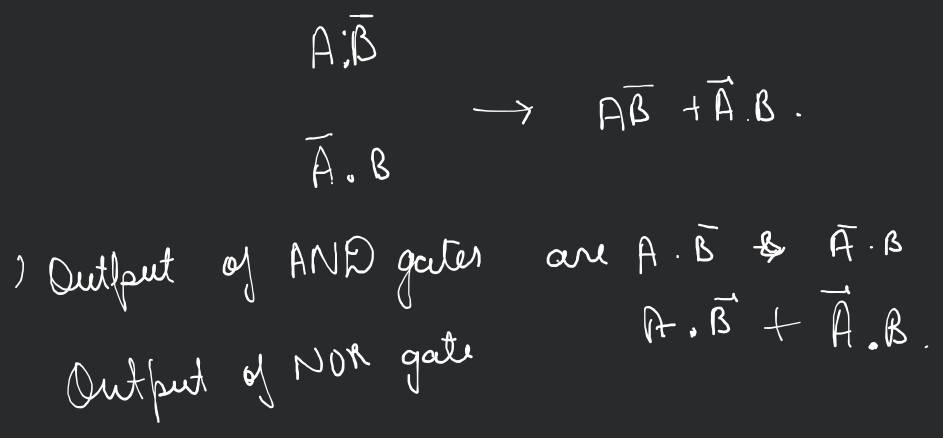 A.B̅
→ AB̅ + A̅.B.
A̅.B
) Output of AND gates are A.B̅ & A̅.B
A.B̅ + A̅.B.
Output of NOR gate